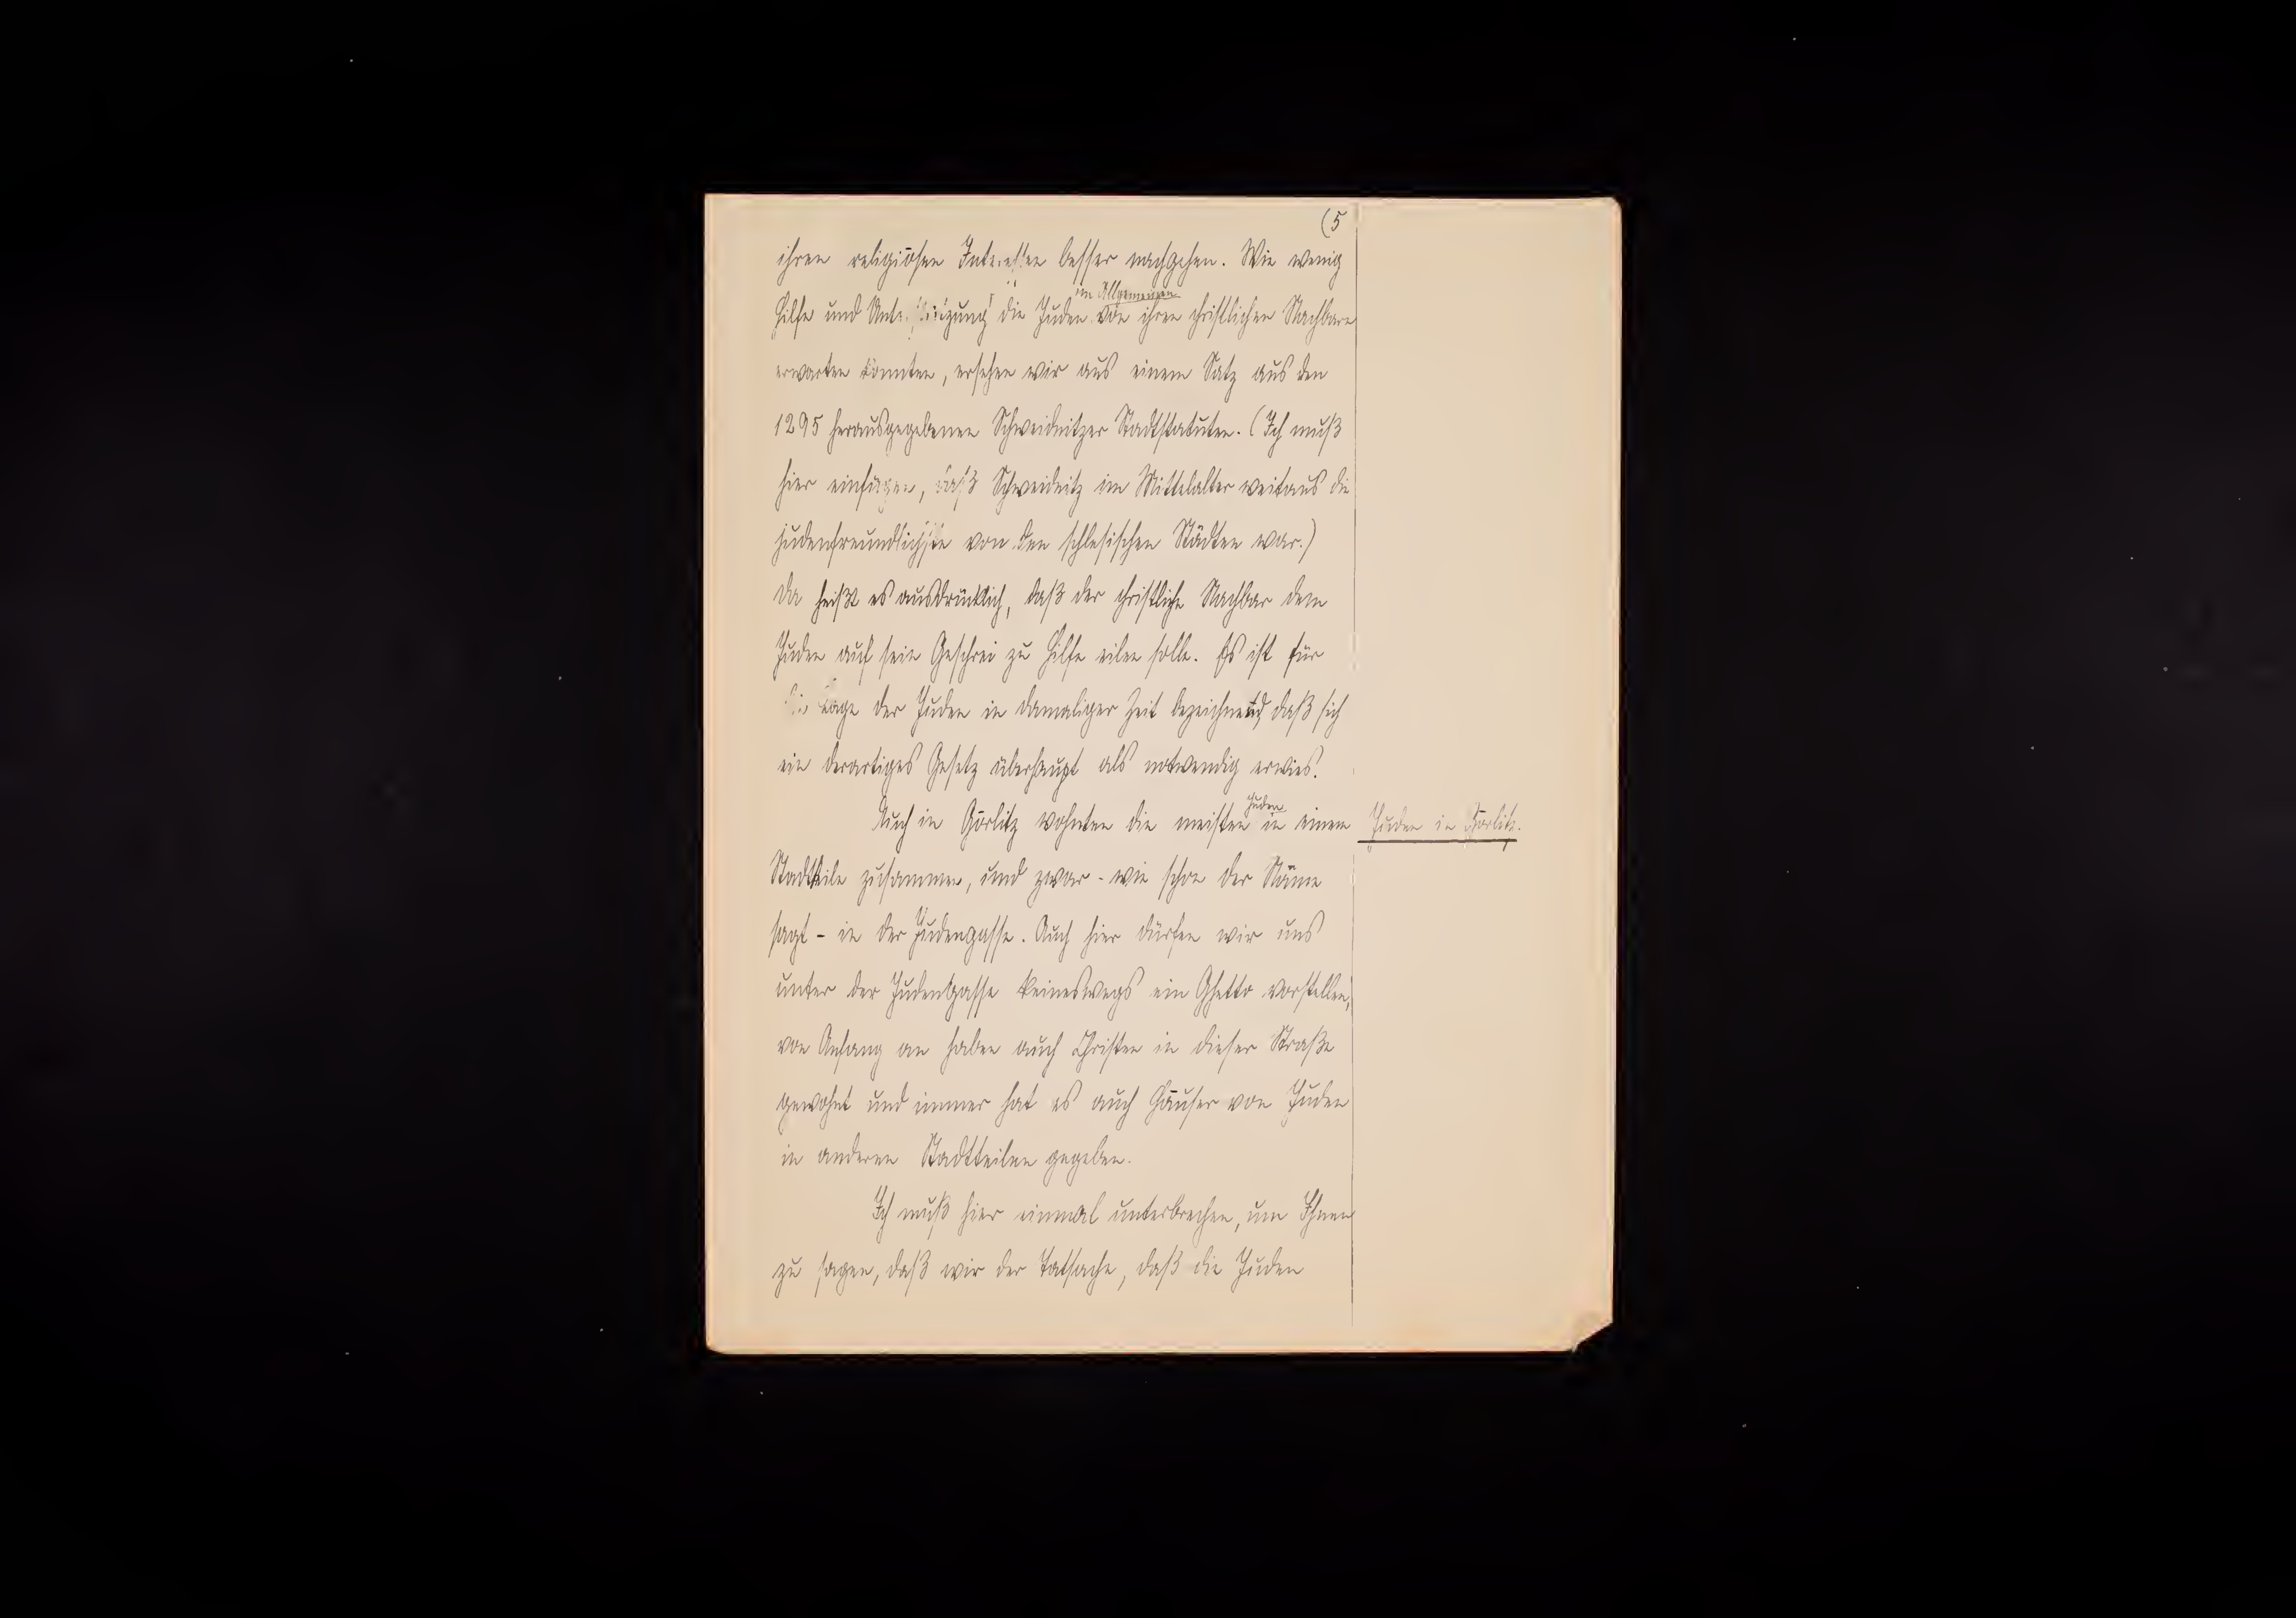 (5
ihren religiösen Interessen besser nachgehen. Wie wenig
im Allgemeinen
Hilfe und Unterstützung die Juden von ihren christlichen Nachbarn
erwarten konnten, ersehen wir aus einem Satz aus den
1295 herausgegebenen Schweidnitzer Stadtstatuten. (Ich muß
hier einfügen, daß Schweidnitz im Mittelalter weitaus die
judenfreundlichste von den schlesischen Städten war.)
Da heißt es ausdrücklich, daß der christliche Nachbar dem
Juden auf sein Geschrei zu Hilfe eilen solle. Es ist für
die Lage der Juden in damaliger Zeit bezeichnend, daß sich
ein derartiges Gesetz überhaupt als notwendig erwies.
Juden
Auch in Görlitz wohnten die meisten in einem
Juden in Görlitz.
Stadtteile zusammen, und zwar - wie schon der Name
sagt - in der Judengasse. Auch hier dürfen wir uns
unter der Judengasse keineswegs ein Ghetto vorstellen;
von Anfang an haben auch Christen in dieser Straße
gewohnt und immer hat es auch Häuser von Juden
in anderen Stadtteilen gegeben.
Ich muß hier einmal unterbrechen, um Ihnen
zu sagen, daß wir der Tatsache, daß die Juden